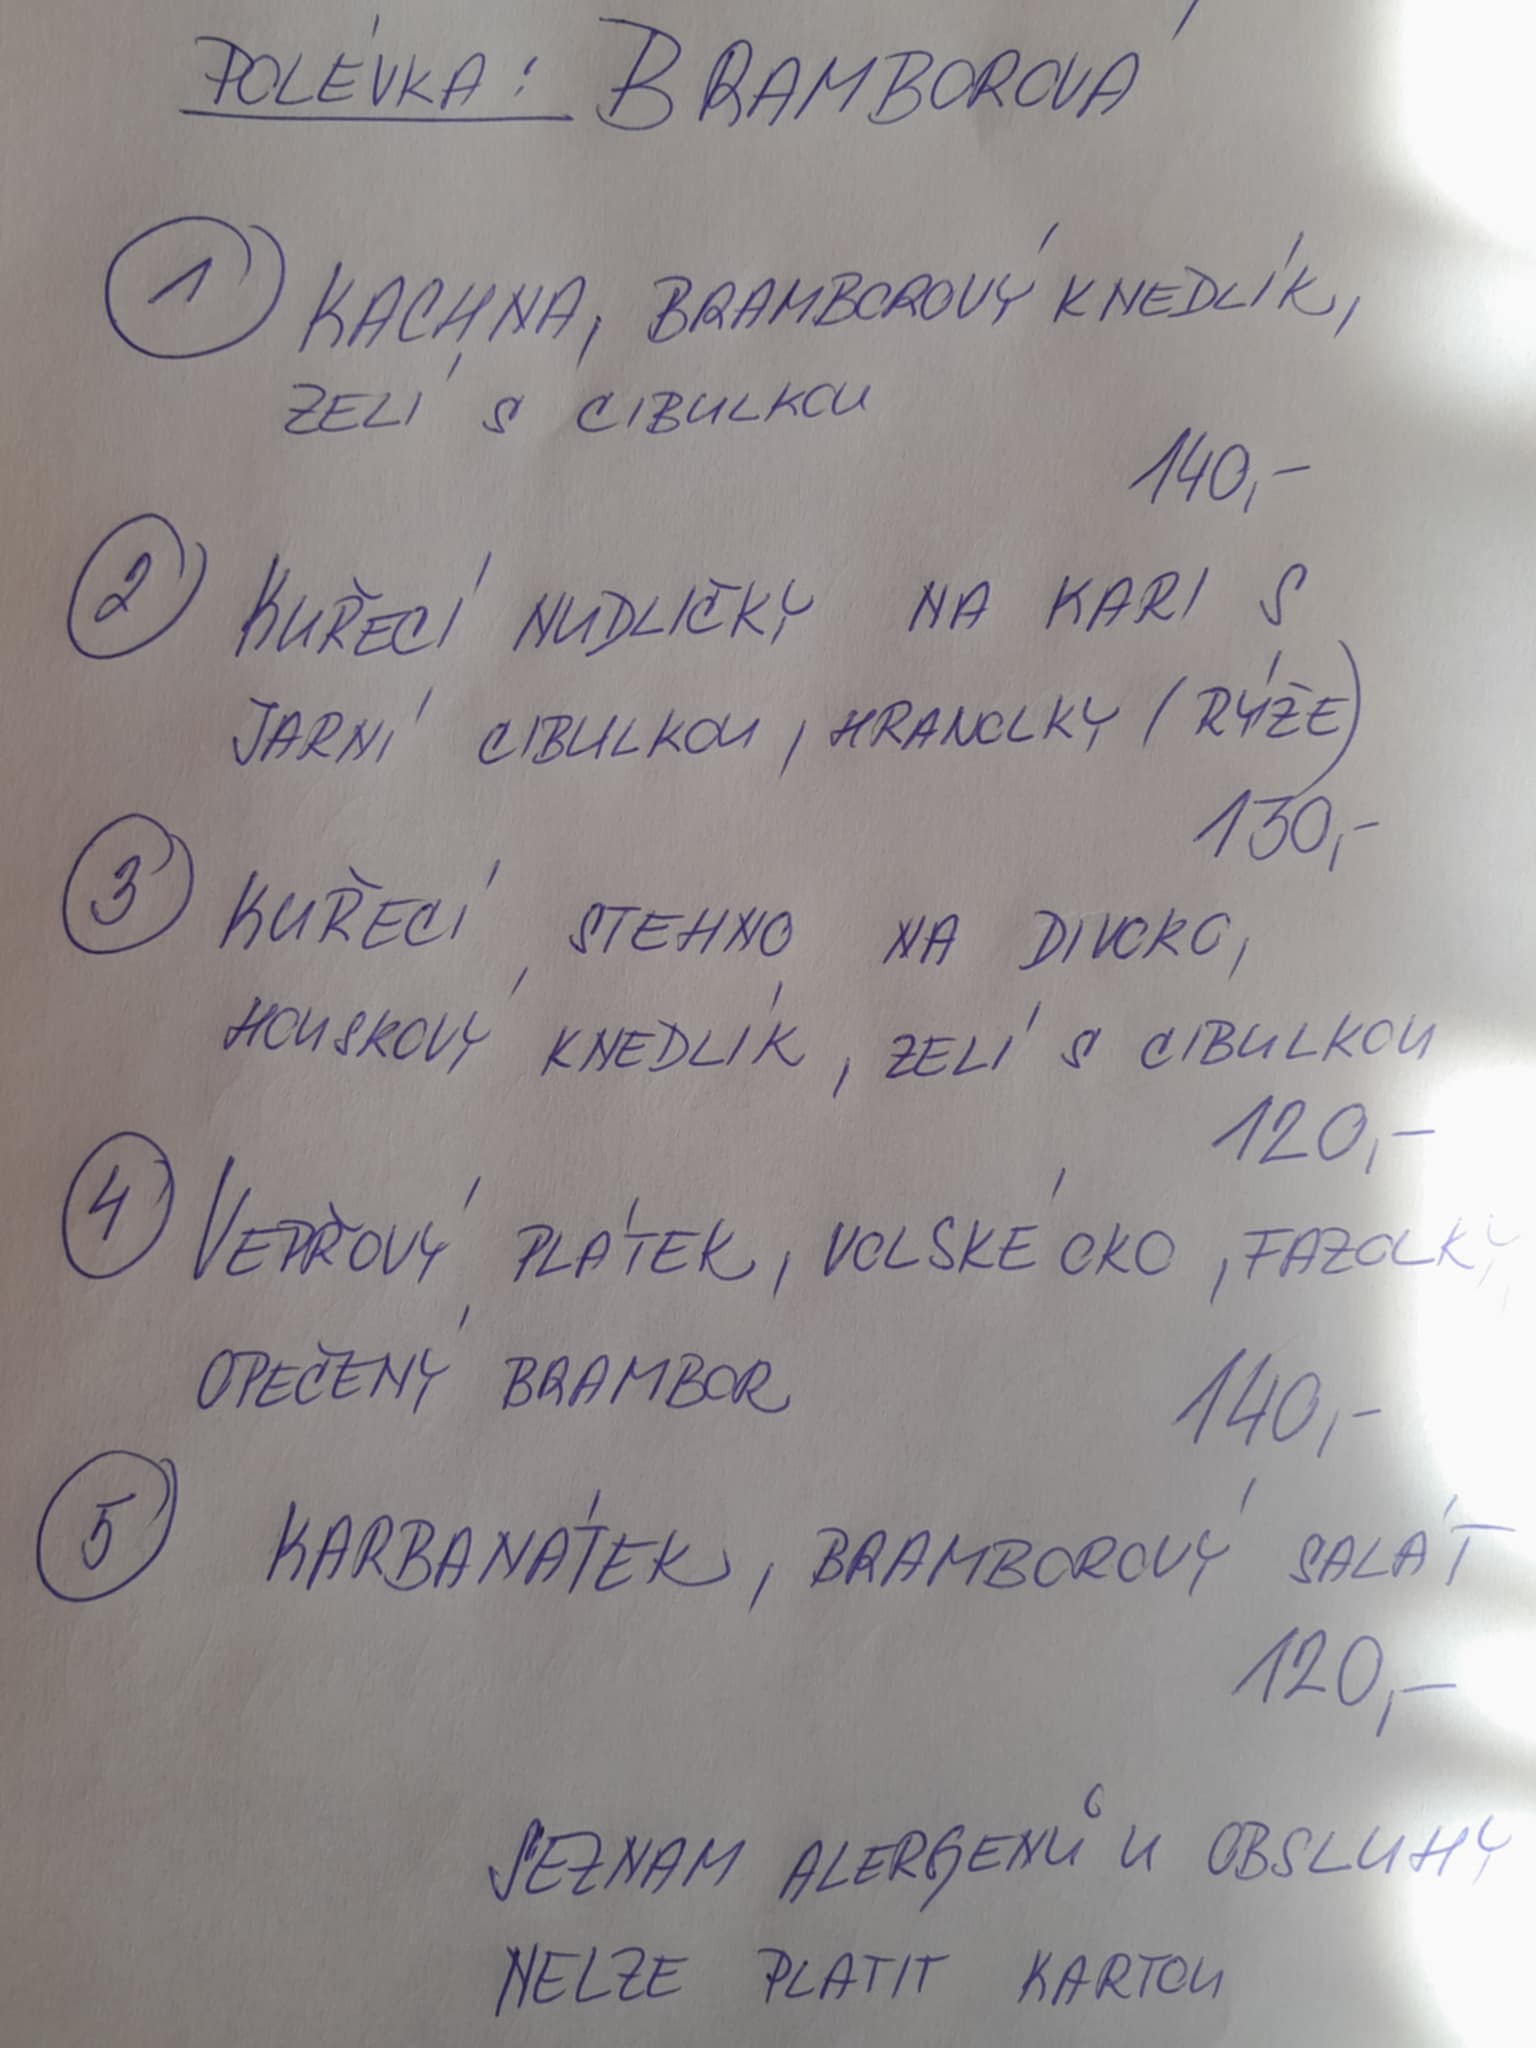 POLÉVKA: BRAMBOROVÁ
1 KACHNA, BRAMBOROVÝ KNEDLÍK,
ZELÍ S CIBULKOU
140,-
2 KUŘECÍ NUDLIČKY NA KARI S
JARNÍ CIBULKOU, HRANOLKY (RÝŽE)
130,-
3 KUŘECÍ STEHNO NA DIVOKO,
HOUSKOVÝ KNEDLÍK, ZELÍ S CIBULKOU
120,-
4 VEPŘOVÝ PLÁTEK, VOLSKÉ OKO, FAZOLKY,
OPEČENÝ BRAMBOR 140,-
5 KARBANÁTEK, BRAMBOROVÝ SALÁT
120,-
SEZNAM ALERGENŮ U OBSLUHY
NELZE PLATIT KARTOU